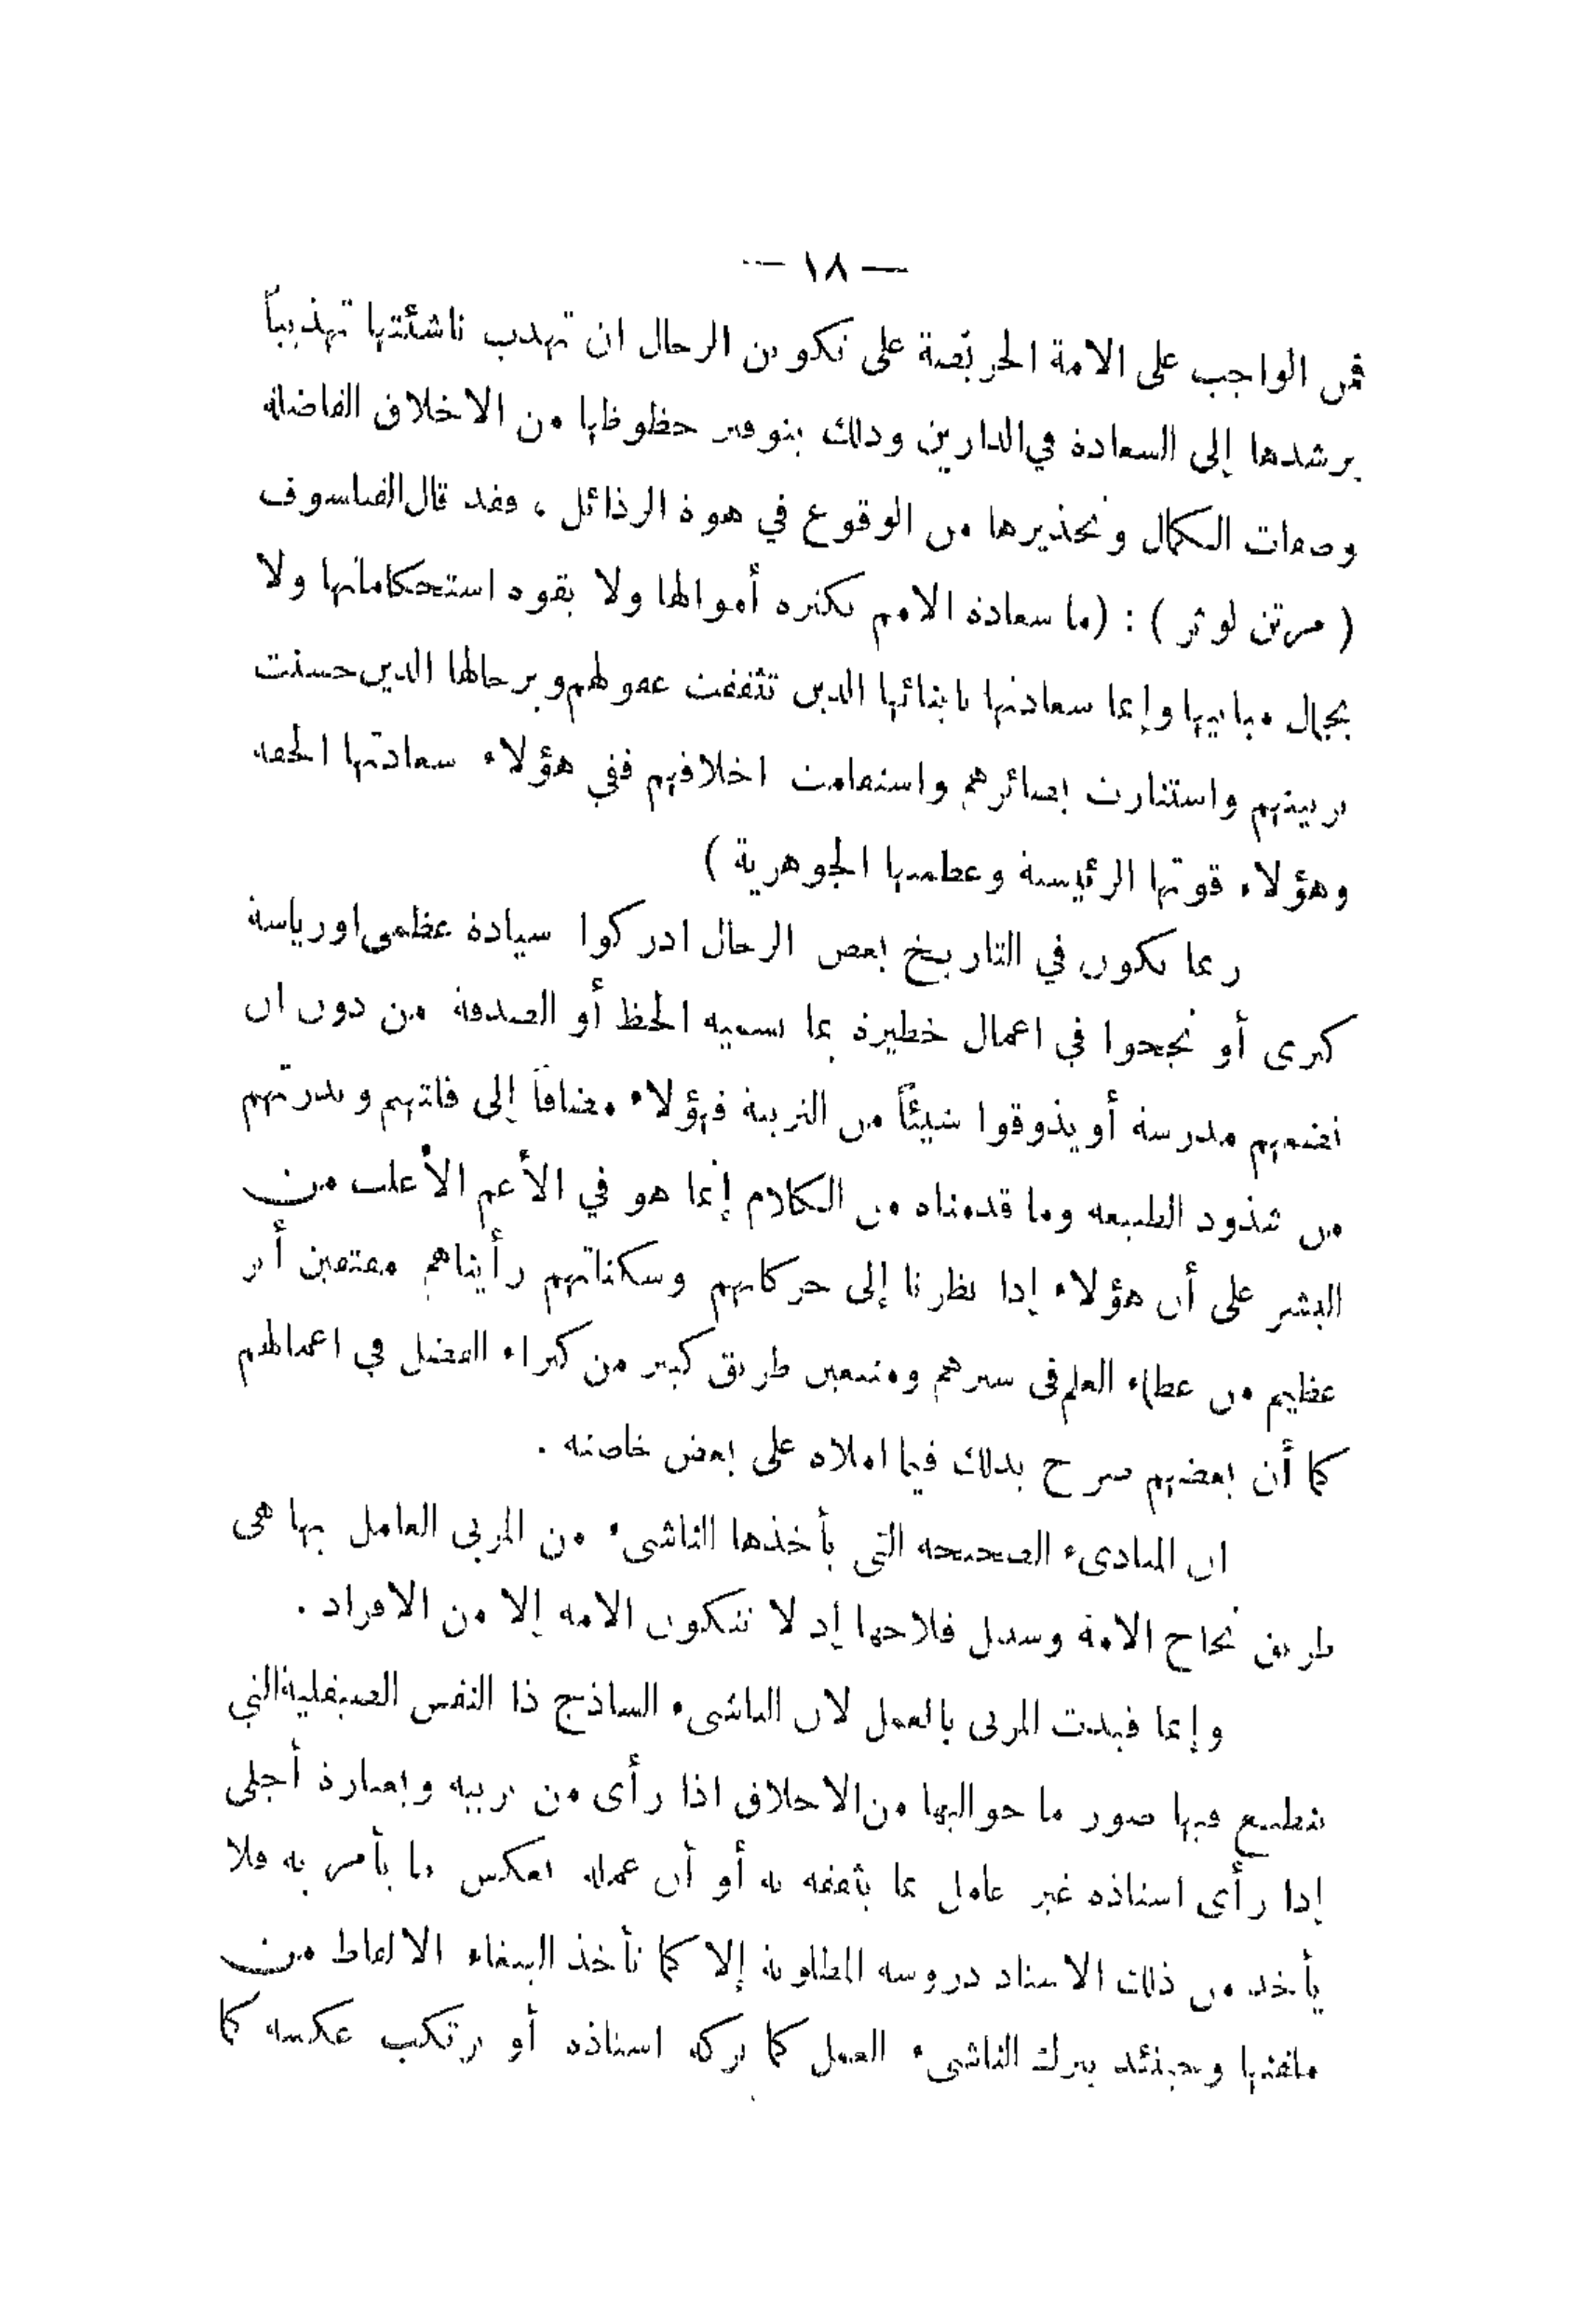 — ١٨ —
فمن الواجب على الامة الحريصة على تكوين الرجال ان تهذب ناشئتها تهذيباً
يرشدها إلى السعادة في الدارين وذلك بتوفير حظوظها من الاخلاق الفاضلة
وصفات الكمال وتحذيرها من الوقوع في هوة الرذائل ، فقد قال الفيلسوف
( مرتن لوثر ) : (ما سعادة الامم بكثرة أموالها ولا بقوة استحكاماتها ولا
بجمال مبانيها وإنما سعادتها بابنائها الذين تثقفت عقولهم وبرجالها الذين حسنت
تربيتهم واستنارت بصائرهم واستقامت اخلاقهم ففي هؤلاء سعادتها الحقة
وهؤلاء قوتها الرئيسة وعظمتها الجوهرية )
ربما يكون في التاريخ بعض الرجال ادركوا سيادة عظمى او رياسة
كبرى أو نجحوا في اعمال خطيرة بما نسميه الحظ أو الصدفة من دون ان
تضمهم مدرسة أو يذوقوا شيئاً من التربية فهؤلاء مضافاً إلى قلتهم وندرتهم
من شذوذ الطبيعة وما قدمناه من الكلام إنما هو في الأعم الأغلب من
البشر على أن هؤلاء إذا نظرنا إلى حركاتهم وسكناتهم رأيناهم مقتفين أثر
عظيم من عظماء العلم في سيرهم ومتبعين طريق كبير من كبراء الفضل في اعمالهم
كما أن بعضهم صرح بذلك فيما املاه على بعض خاصته .
ان المبادىء الصحيحة التي يأخذها الناشىء من المربي العامل بها هي
طريق نجاح الامة وسبيل فلاحها إذ لا تتكون الامة إلا من الافراد .
وإنما قيدت المربي بالعمل لان الناشىء الساذج ذا النفس الصيقلية التي
تنطبع فيها صور ما حواليها من الاخلاق اذا رأى من يربيه وبعبارة أجلى
إذا رأى استاذه غير عامل بما يثقفه به أو أن عمله بعكس ما يأمر به فلا
يأخذ من ذلك الاستاذ دروسه المطلوبة إلا كما تأخذ الببغاء الالفاظ من
ملقنها وحينئذ يترك الناشىء العمل كما تركه استاذه أو يرتكب عكسه كما